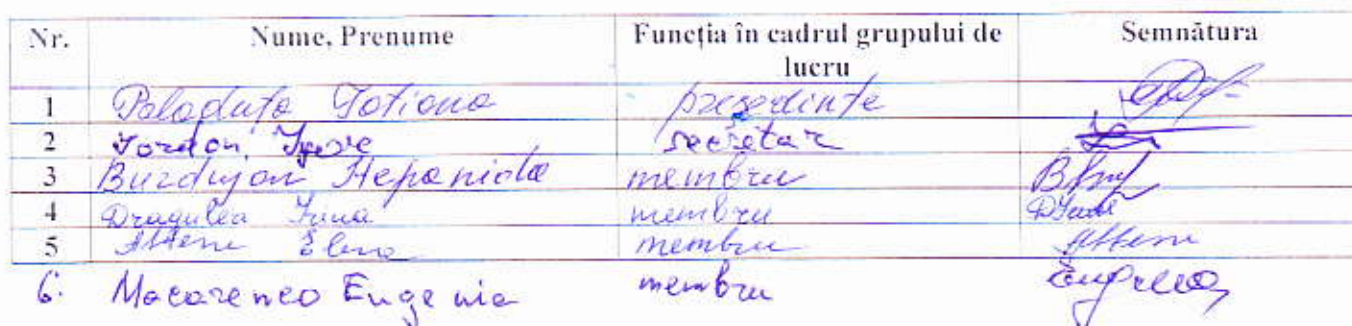 Nr. Nume, Prenume Funcția în cadrul grupului de lucru Semnătura
1 Paladuța Tatiana președinte
2 Iordan secretar
3 Burdujan Stepanida membru
4 Dragulea Irina membru
5 Elena membru
6. Macarenco Eugenia membru